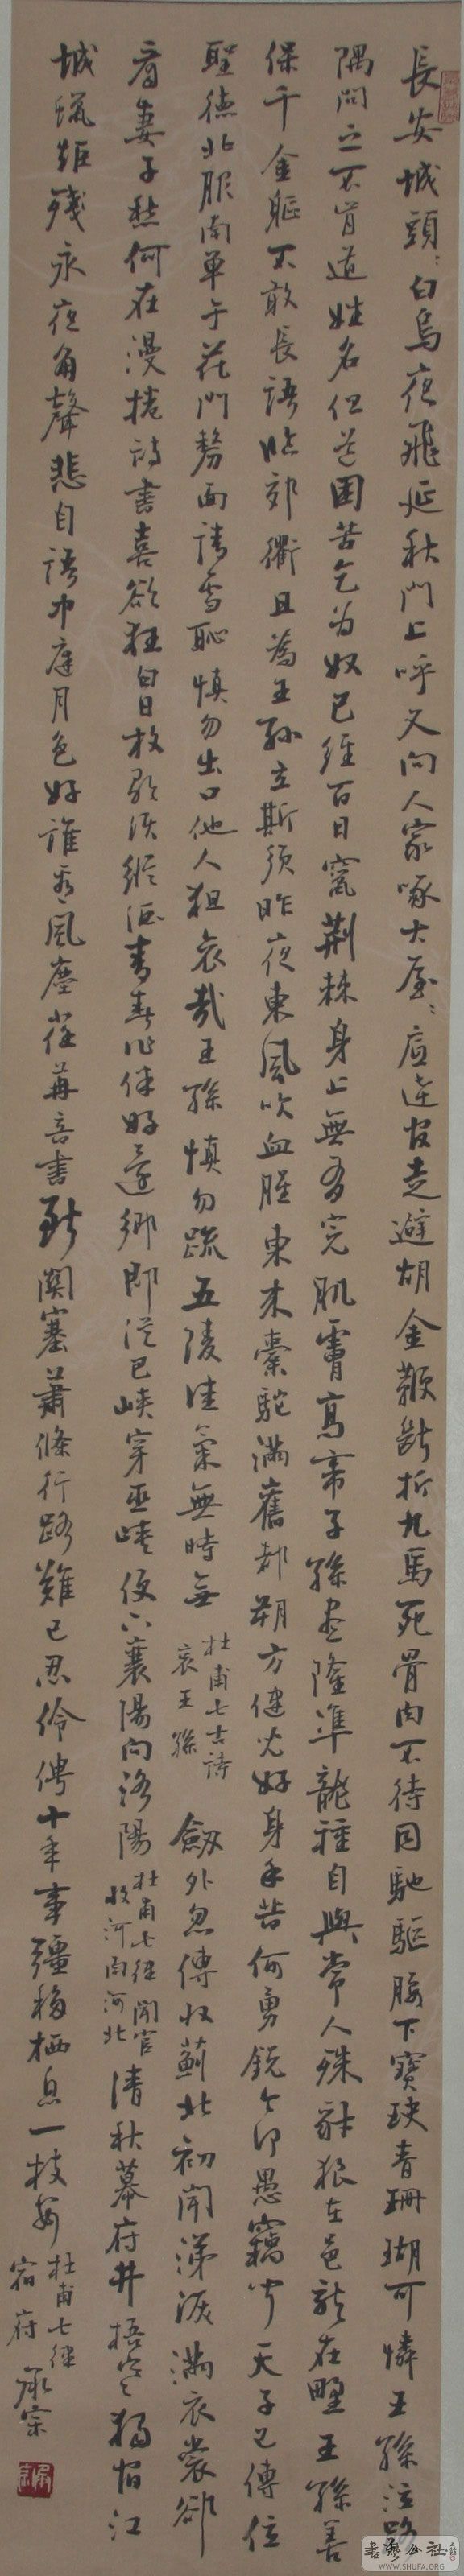 長安城頭々白烏夜飛延秋門上呼又向人家啄大屋々底達官走避胡金鞭斷折九馬死骨肉不待同馳驅腰下寶玦青珊瑚可憐王孫泣路
隅問之不肯道姓名但道困苦乞為奴已經百日竄荊棘身上無有完肌膚高帝子孫盡隆準龍種自與常人殊豺狼在邑龍在野王孫善
保千金軀不敢長語臨郊衢且為王孫立斯須昨夜東風吹血腥東來橐駝滿舊都朔方健兒好身手昔何勇銳今何愚竊聞天子已傳位
聖德北服南單于花門剺面請雪恥慎勿出口他人狙哀哉王孫慎勿疏五陵佳氣無時無
杜甫七古詩
哀王孫
劍外忽傳收薊北初聞涕淚滿衣裳卻
看妻子愁何在漫捲詩書喜欲狂白日放歌須縱酒青春作伴好還鄉即從巴峽穿巫峽便下襄陽向洛陽
杜甫七律聞官
收河南河北
清秋幕府井梧寒獨宿江
城蠟炬殘永夜角聲悲自語中庭月色好誰看風塵荏苒音書斷關塞蕭條行路難已忍伶俜十年事彊移栖息一枝安
杜甫七律
宿府
承宗
書藝公社
WWW.SHUFA.ORG